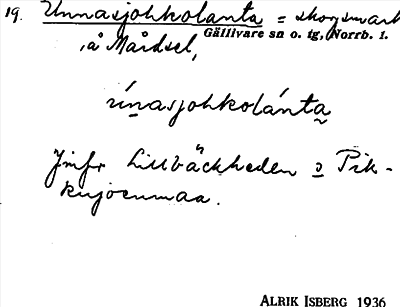 19. Unnasjohkolanta = skogsmark
Gällivare sn o. tg, Norrb. l.
å Mårdsel,
únasjohkolánta
Jmfr Lillbäckheden o Pik-
kujoenmaa.
ALRIK ISBERG 1936